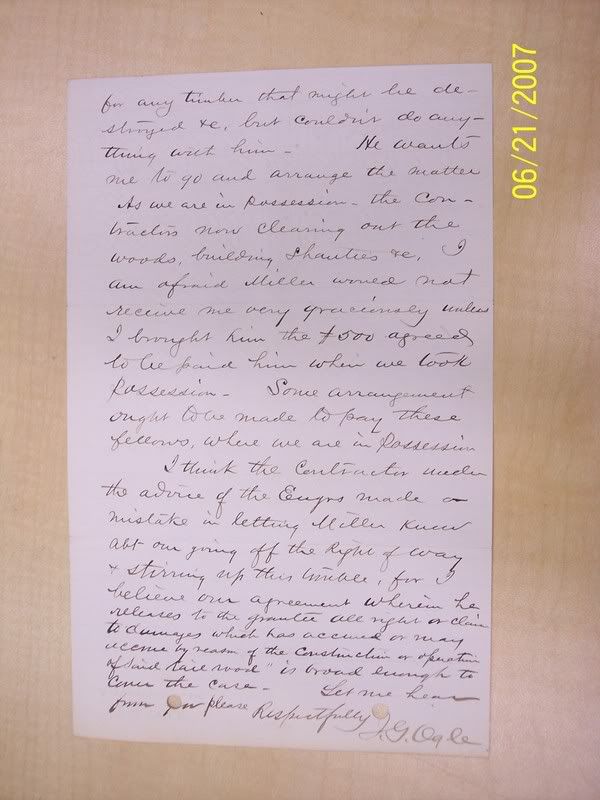 for any timber that might be de-
stroyed &c, but couldn't do any-
thing with him - He wants
me to go and arrange the matter
As we are in Possession - the Con-
tractors now clearing out the
woods, building Shanties &c, I
am afraid Miller would not
receive me very graciously unless
I brought him the $500 agreed
to be paid him when we took
Possession - Some arrangement
ought to be made to pay these
fellows, where we are in Possession
I think the Contractor under
the advice of the Engrs made a
mistake in letting Miller know
abt our going off the Right of Way
& stirring up this trouble, for I
believe our agreement wherein he
releases to the grantee all right or claim
to damages which has accrued or may
accrue by reason of the Construction or operation
of said rail road" is broad enough to
cover the case - Let me hear
from you please Respectfully J. G. Ogle
06/21/2007